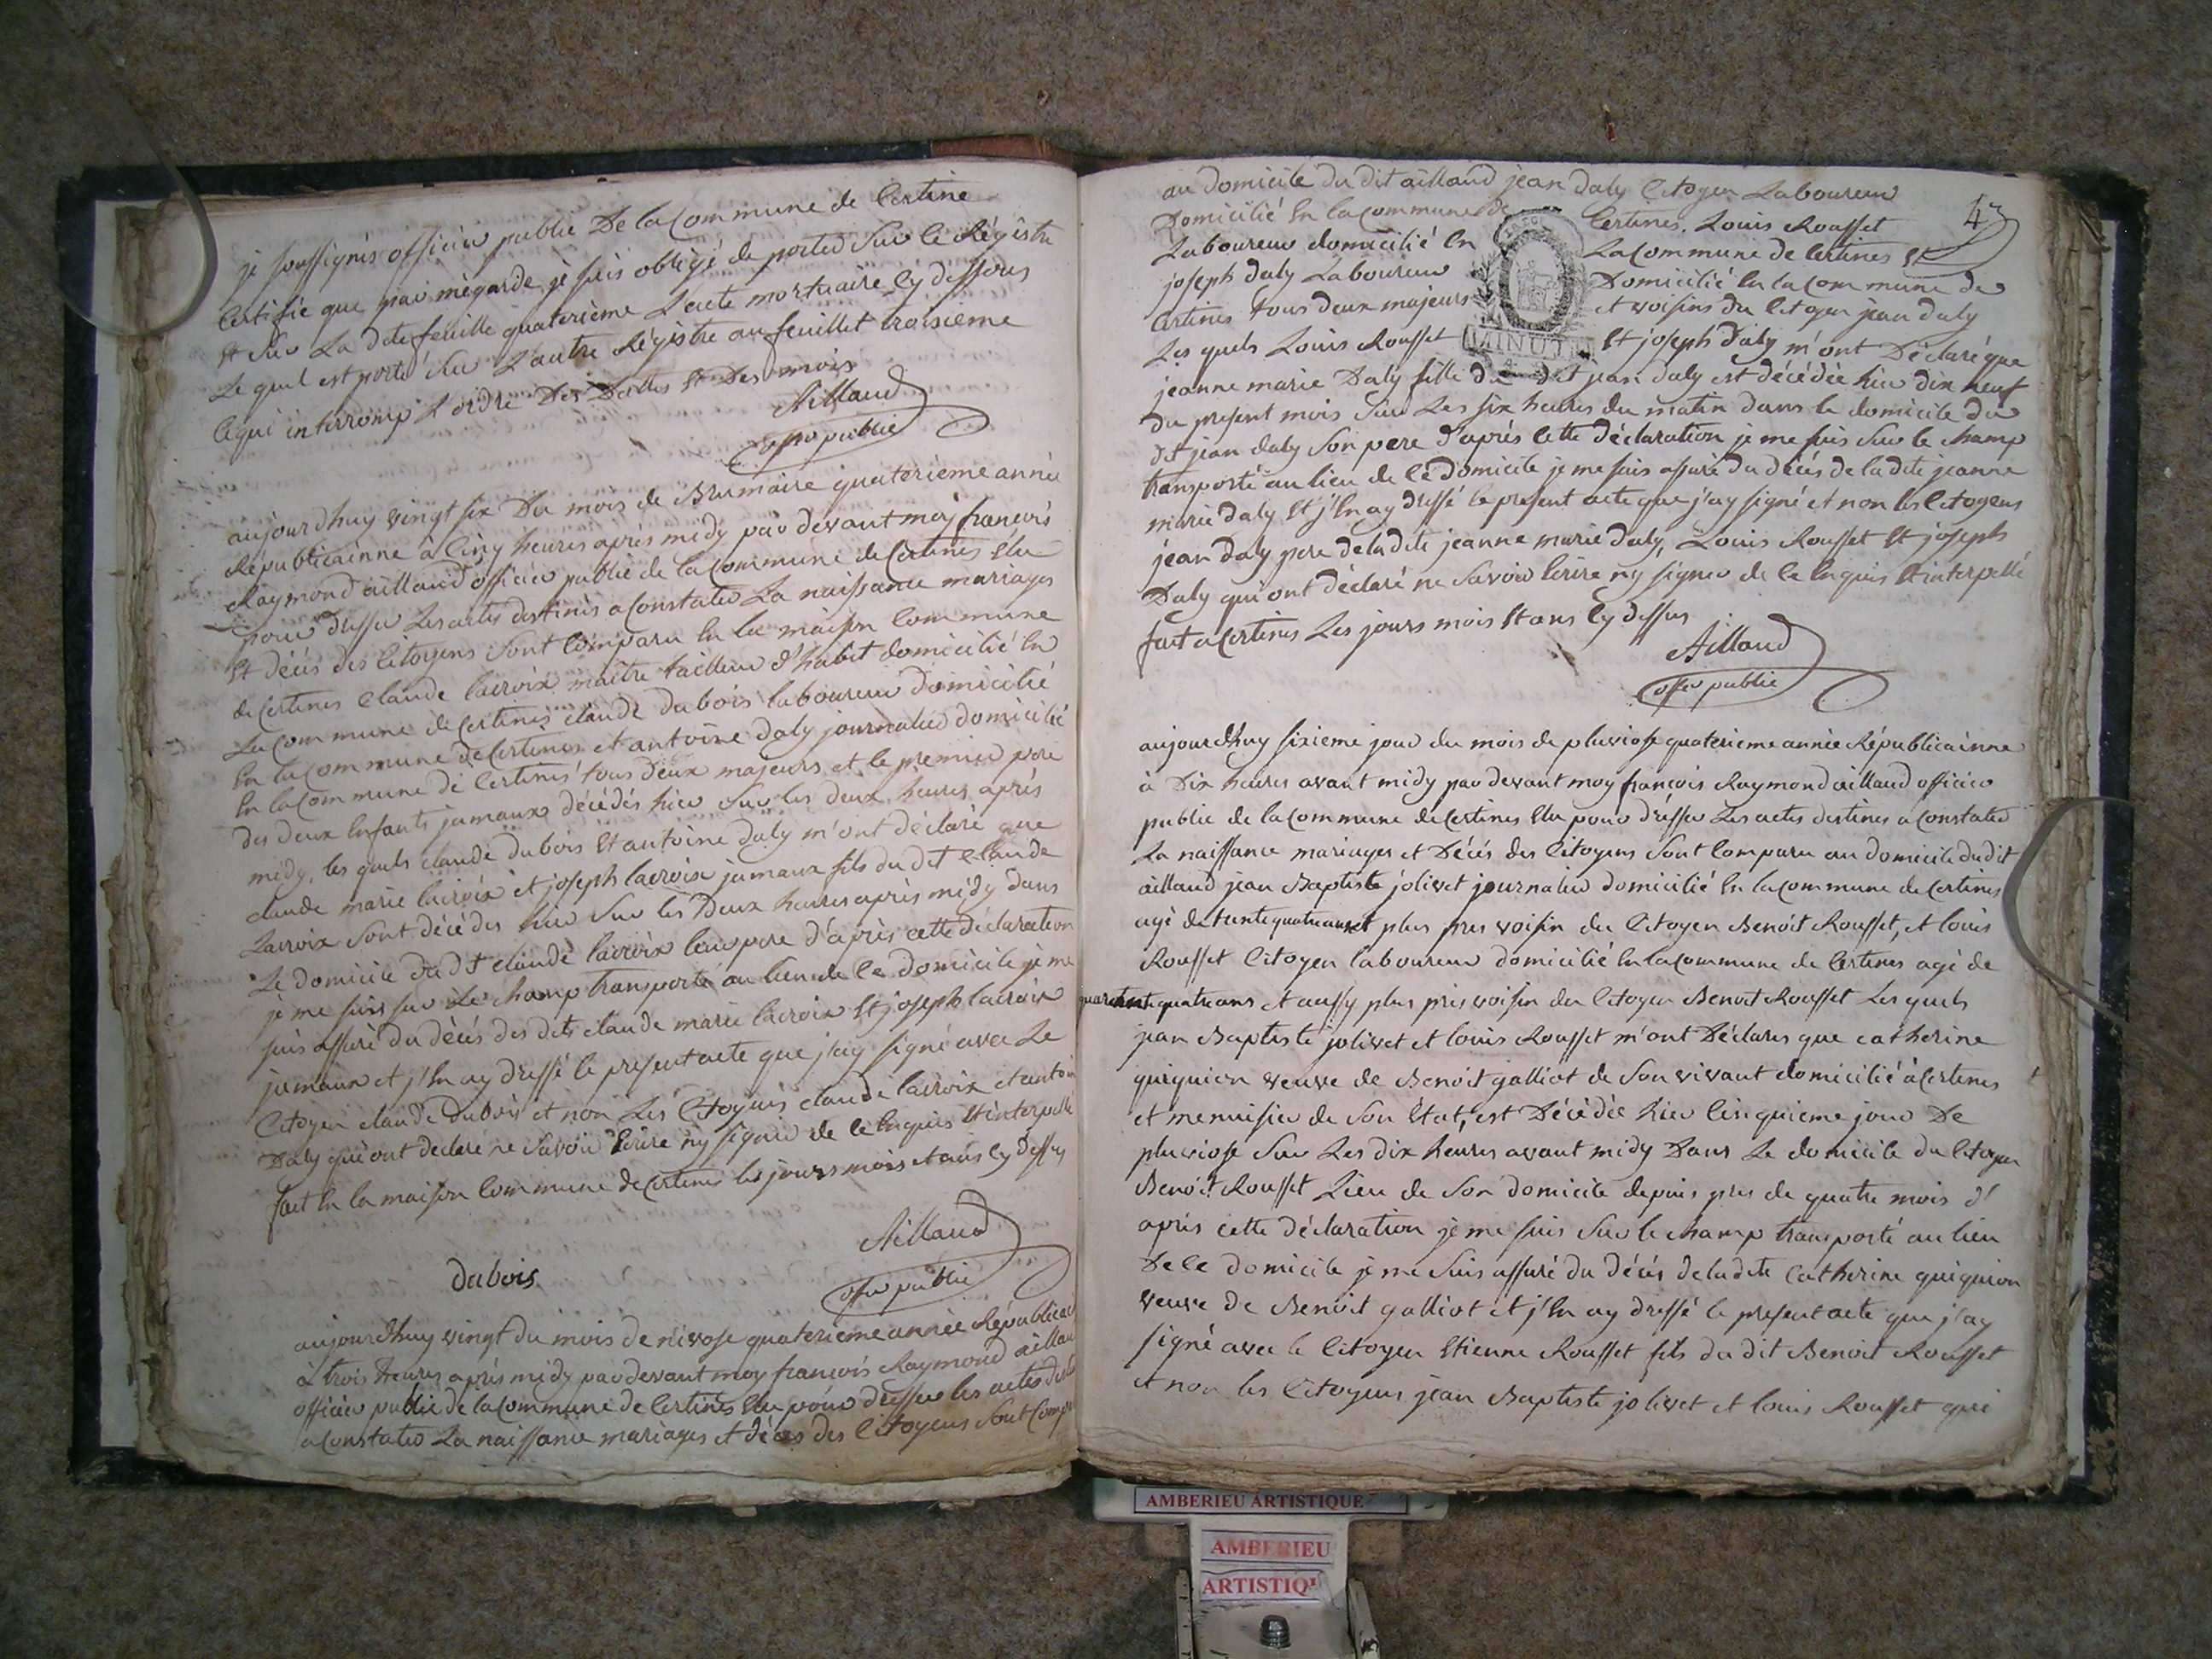 je soussignés officier public De la Commune de Certine
Certifie que par mégarde je suis obligé de porter Sur le Régistre
et Sur La dte feuille quaterième L'acte mortuaire Cy dessous
Le quel est porté Sur L'autre Régistre au feuillet troisieme
Ce qui interromp L'ordre Des Dattes et Des mois
Aillaud
offier public
aujourdhuy vingt six Du mois de Brumaire quaterieme année
Républicainne à Cinq heures après midy par devant moy françois
Raymond aillaud officier public de la Commune de Certines Elu
pour dresser Les actes destinés a Constater La naissance mariages
et décés des Citoyens Sont Comparu En la maison Commune
de Certines Claude lacroix maître tailleur d'habit domicilié En
La Commune de Certines claude dubois laboureur domicilié
En la Commune de Certines et antoine daly journalier domicilié
En la Commune de Certines tous deux majeurs et le premier pere
des deux Enfants jumaux décédés hier Sur les deux heures après
midy, les quels claude dubois Et antoine daly m'ont déclaré que
claude marie lacroix et joseph lacroix jumaux fils du dit Claude
Lacroix Sont décédés hier Sur les Deux heures après midy dans
Le domicile du dt claude lacroix leur pere d'après cette déclaration
je me suis sur Le champ transporté au lieu de Ce domicile je me
suis assuré du décés des dits claude marie lacroix Et joseph lacroix
jumaux et j'En ay dressé le present acte que j'ay signé avec Le
Citoyen claude Dubois et non Les Citoyens claude lacroix et antoin
Daly qui ont declaré ne Savoir Ecrire ny signer de ce Enquis Et interpellé
fait En la maison Commune de Certines les jours mois et ans Cy dessus
Aillaud
dubois
offier public
aujourdhuy vingt du mois de nivose quaterieme année Républicai
à trois heures après midy par devant moy françois Raymond aillau
officier public de la Commune de Certines Elu pour dresser les actes
a Constater La naissance mariages et décés des Citoyens Sont Compa
43
au domicile du dit aillaud jean daly Citoyen Laboureur
Domicilié En la Commune de Certines. Louis Rousset
Laboureur domicilié En La Commune de Certines Et
joseph daly Laboureur Domicilié En la Commune de
Certines tous deux majeurs et voisins du Citoyen jean daly
Les quels Louis Rousset Et joseph Daly m'ont Déclaré que
MINUTE
jeanne marie Daly fille du dit jean daly est décédée hier dix neuf
du present mois Sur Les six heures du matin dans le domicile du
dt jean daly Son pere d'après cette déclaration je me suis Sur le champ
transporté au lieu de Ce domicile je me suis assuré du décés de la dite jeanne
marie daly Et j'En ay dressé le present acte que j'ay signé et non les Citoyens
jean daly pere de la dite jeanne marie daly, Louis Rousset Et joseph
Daly qui ont déclaré ne Savoir Ecrire ny signer de ce Enquis Et interpellé
fait a Certines Les jours mois Et ans Cy dessus
Aillaud
offier public
aujourdhuy sixieme jour du mois de pluviose quaterieme année Républicainne
à Dix heures avant midy par devant moy françois Raymond aillaud officier
public de la Commune de Certines Elu pour dresser Les actes destinés a Constater
La naissance mariages et Décés des Citoyens Sont Comparu au domicile du dit
aillaud jean Baptiste jolivet journalier domicilié En la Commune de Certines
agé de trente quatre ans et plus pres voisin du Citoyen Benoit Rousset, et louis
Rousset Citoyen laboureur domicilié En la Commune de Certines agé de
quatre ans et aussy plus pres voisin du Citoyen Benoit Rousset Les quels
jean Baptiste jolivet et louis Rousset m'ont Déclarés que catherine
guiguion veuve de Benoit galliot de Son vivant domicilié à Certines
et menuisier de Son Etat, est Décédée hier Cinquieme jour De
pluviose Sur Les dix heures avant midy Dans Le domicile du Citoyen
Benoit Rousset Lieu de Son domicile depuis pres de quatre mois d'
après cette déclaration je me suis Sur le champ transporté au lieu
De Ce domicile je me Suis assuré du décés de la dite Catherine guiguion
veuve de Benoit galliot et j'En ay dressé le present acte que j'ay
signé avec le Citoyen Etienne Rousset fils du dit Benoit Rousset
et non les Citoyens jean Baptiste jolivet et louis Rousset qui
AMBERIEU ARTISTIQUE
AMBERIEU
ARTISTIQ